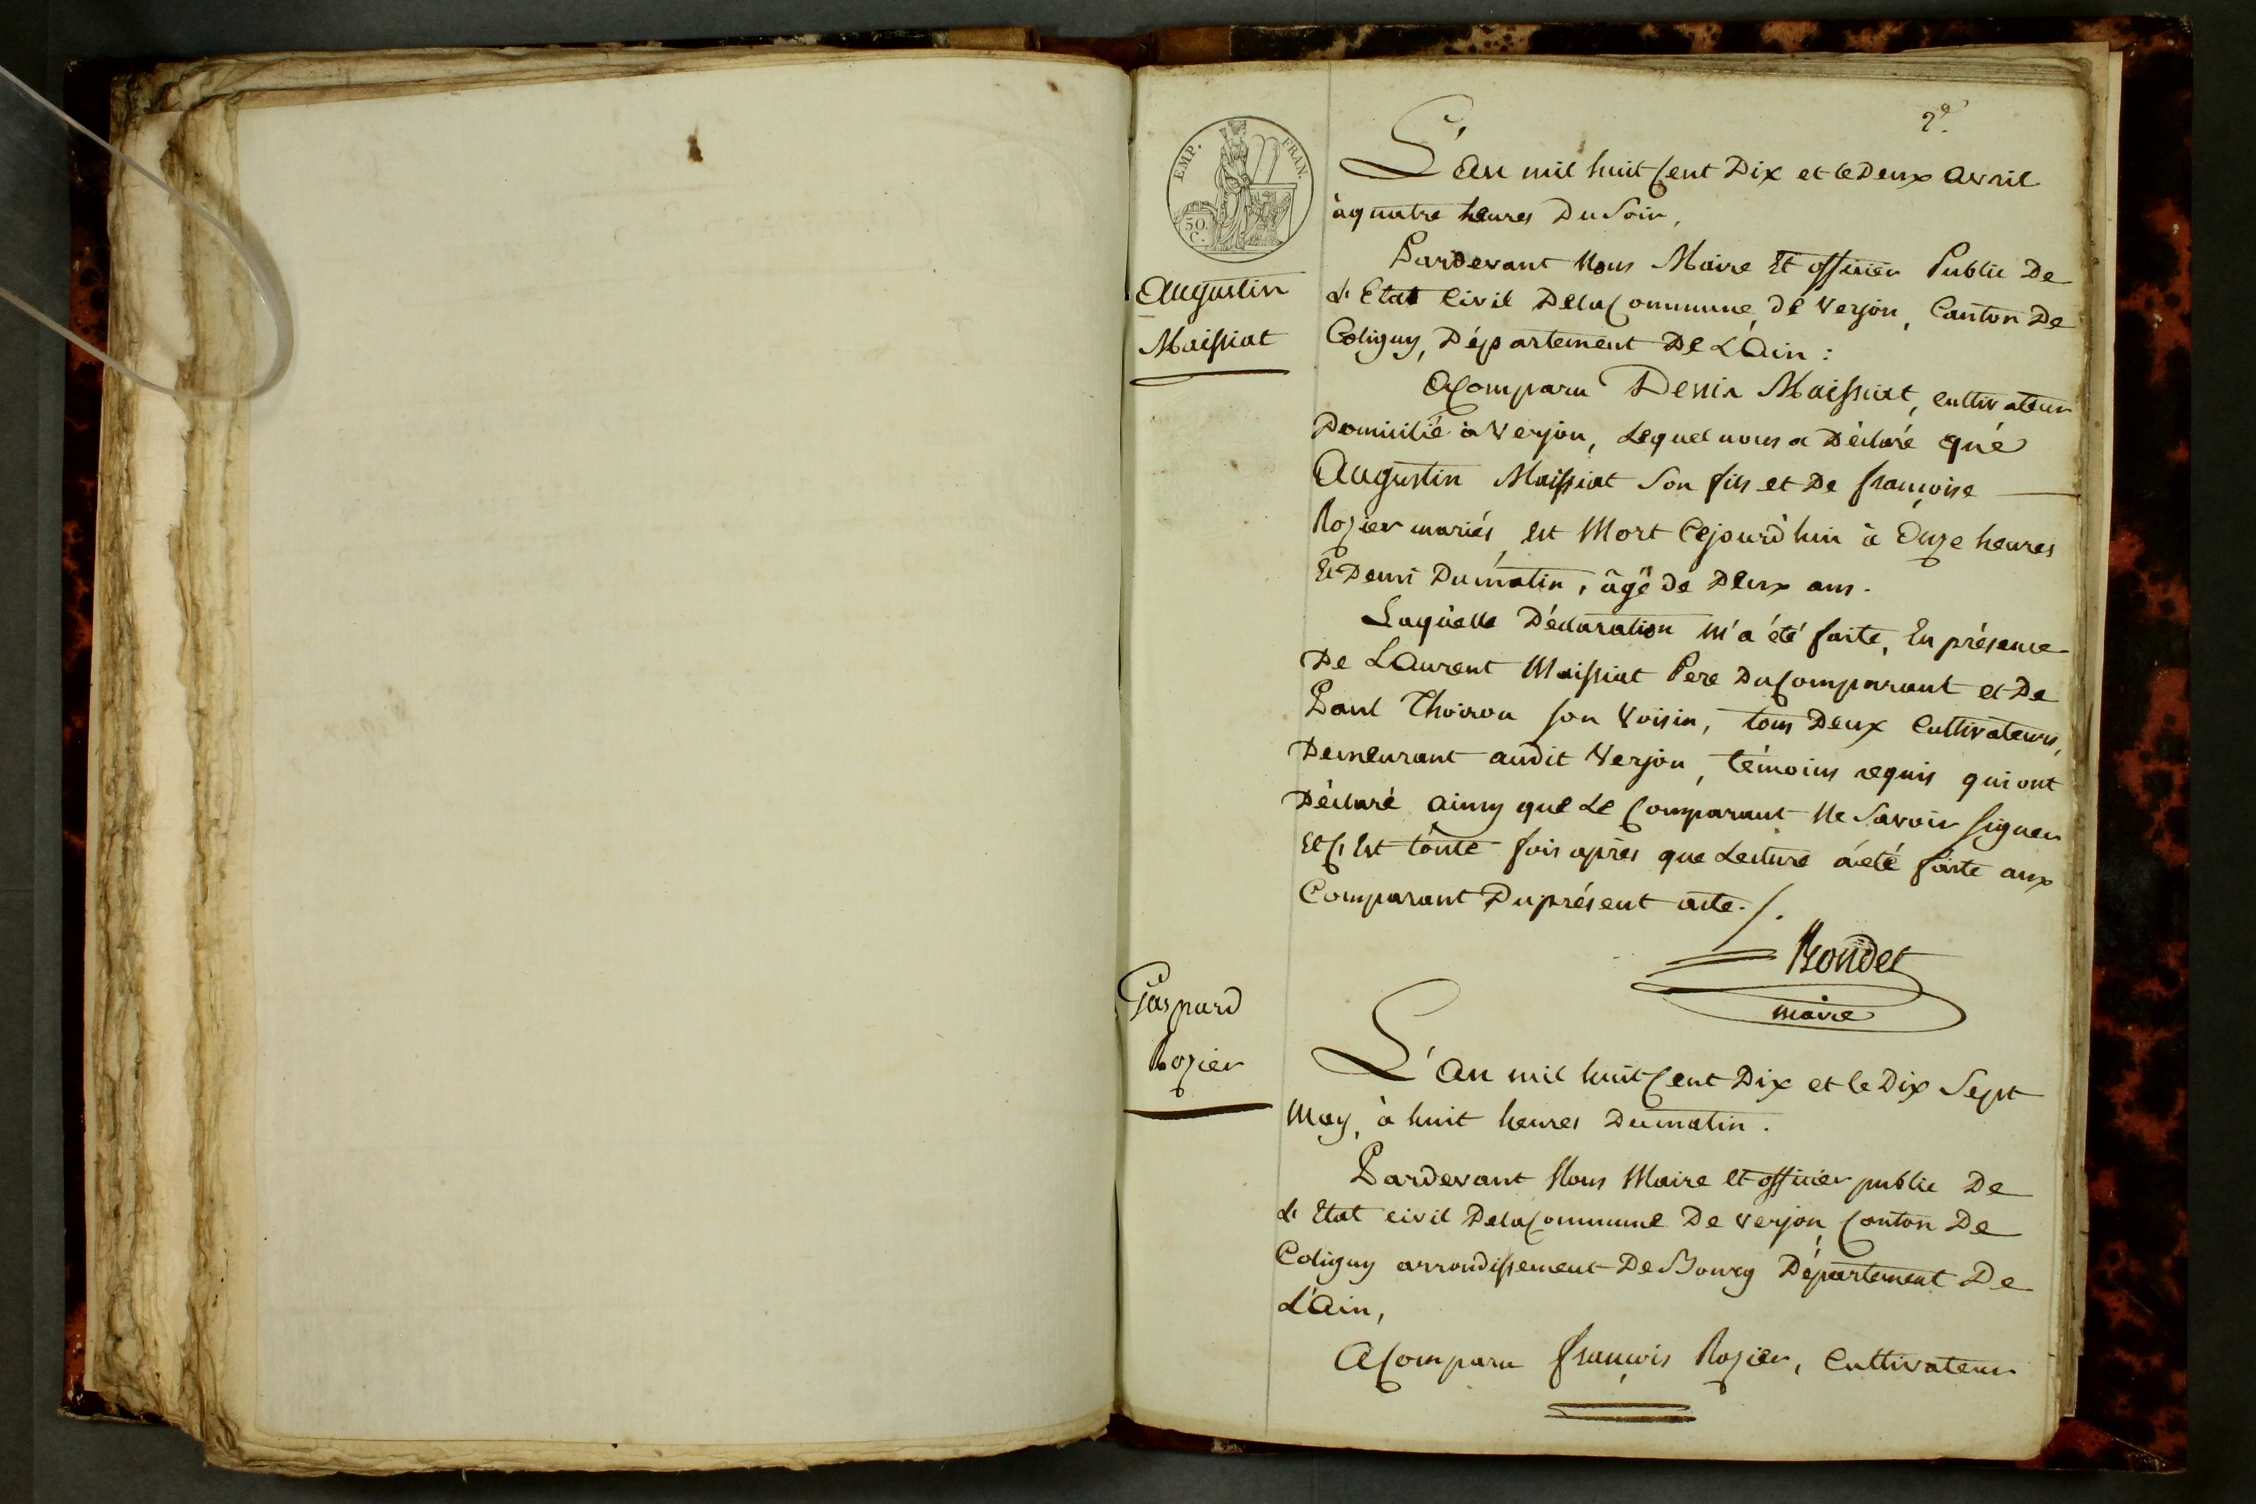 2e.
EMP. FRAN.
50.
C.
Augustin
Maissiat
L'an mil huit Cent Dix et le Deux avril
à quatre heures Du Soir,
Pardevant Nous Maire Et officier Public De
L'Etat Civil De la Commune, de Verjon, Canton De
Coligny, Département De L'Ain :
A Comparu Denis Maissiat, cultivateur
Domicilié à Verjon, Lequel nous a Déclaré que
Augustin Maissiat Son fils et De françoise
Rozier mariés, est Mort Cejourd'hui à Onze heures
Et Demi Du matin, âgé de Deux ans.
Laquelle Déclaration m'a été faite, En présence
De Laurent Maissiat Pere Du Comparant et De
Paul Thoiron son Voisin, tous Deux Cultivateurs,
Demeurant audit Verjon, témoins requis qui ont
Déclaré ainsy que Le Comparant Ne Savoir signer
Et C'Est toute fois après que Lecture a été faite aux
Comparant Du présent acte./.
Bondet
maire
Gaspard
Rozier
L'an mil huit Cent Dix et le Dix Sept
May, à huit heures Du matin.
Pardevant Nous Maire Et officier public De
L'Etat civil De la Commune De Verjon, Canton De
Coligny arrondissement De Bourg Département De
L'Ain,
A Comparu françois Rozier, Cultivateur